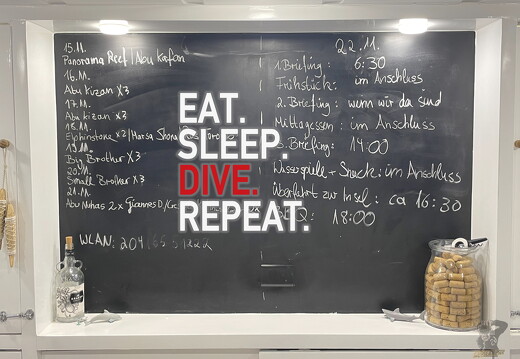 15.11.
Panorama Reef / Abu Kafan
16.11.
Abu Kizan x3
17.11.
Abu Kizan x3
18.11.
Elphinstone x2 / Marsa Shona
19.11.
Big Brother x3
20.11.
Small Brother x3
21.11.
Abu Nuhas 2x Giannes D/
WLAN: 204
22.11.
1. Briefing: 6:30
Frühstück: im Anschluss
2. Briefing: wenn wir da sind
Mittagessen: im Anschluss
Briefing: 14:00
Wasserspiele + Snack: im Anschluss
Überfahrt zur Insel: ca 16:30
18:00
EAT.
SLEEP.
DIVE.
REPEAT.